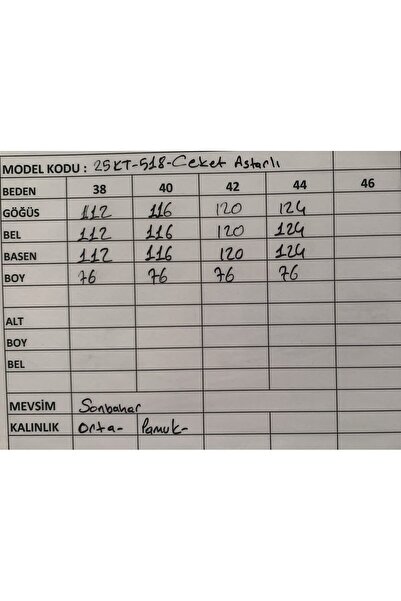 MODEL KODU : 25KT-518-Ceket Astarlı
BEDEN 38 40 42 44 46
GÖĞÜS 112 116 120 124
BEL 112 116 120 124
BASEN 112 116 120 124
BOY 76 76 76 76
ALT
BOY
BEL
MEVSİM Sonbahar
KALINLIK Orta- Pamuk-